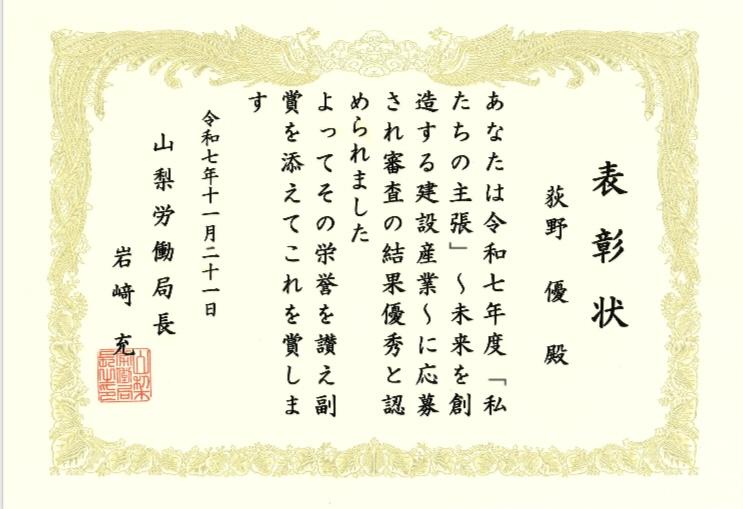 表彰状
荻野 優 殿
あなたは令和七年度「私
たちの主張」～未来を創
造する建設産業～に応募
され審査の結果優秀と認
められました
よってその栄誉を讃え副
賞を添えてこれを賞しま
す
令和七年十一月二十一日
山梨労働局長
岩﨑 充